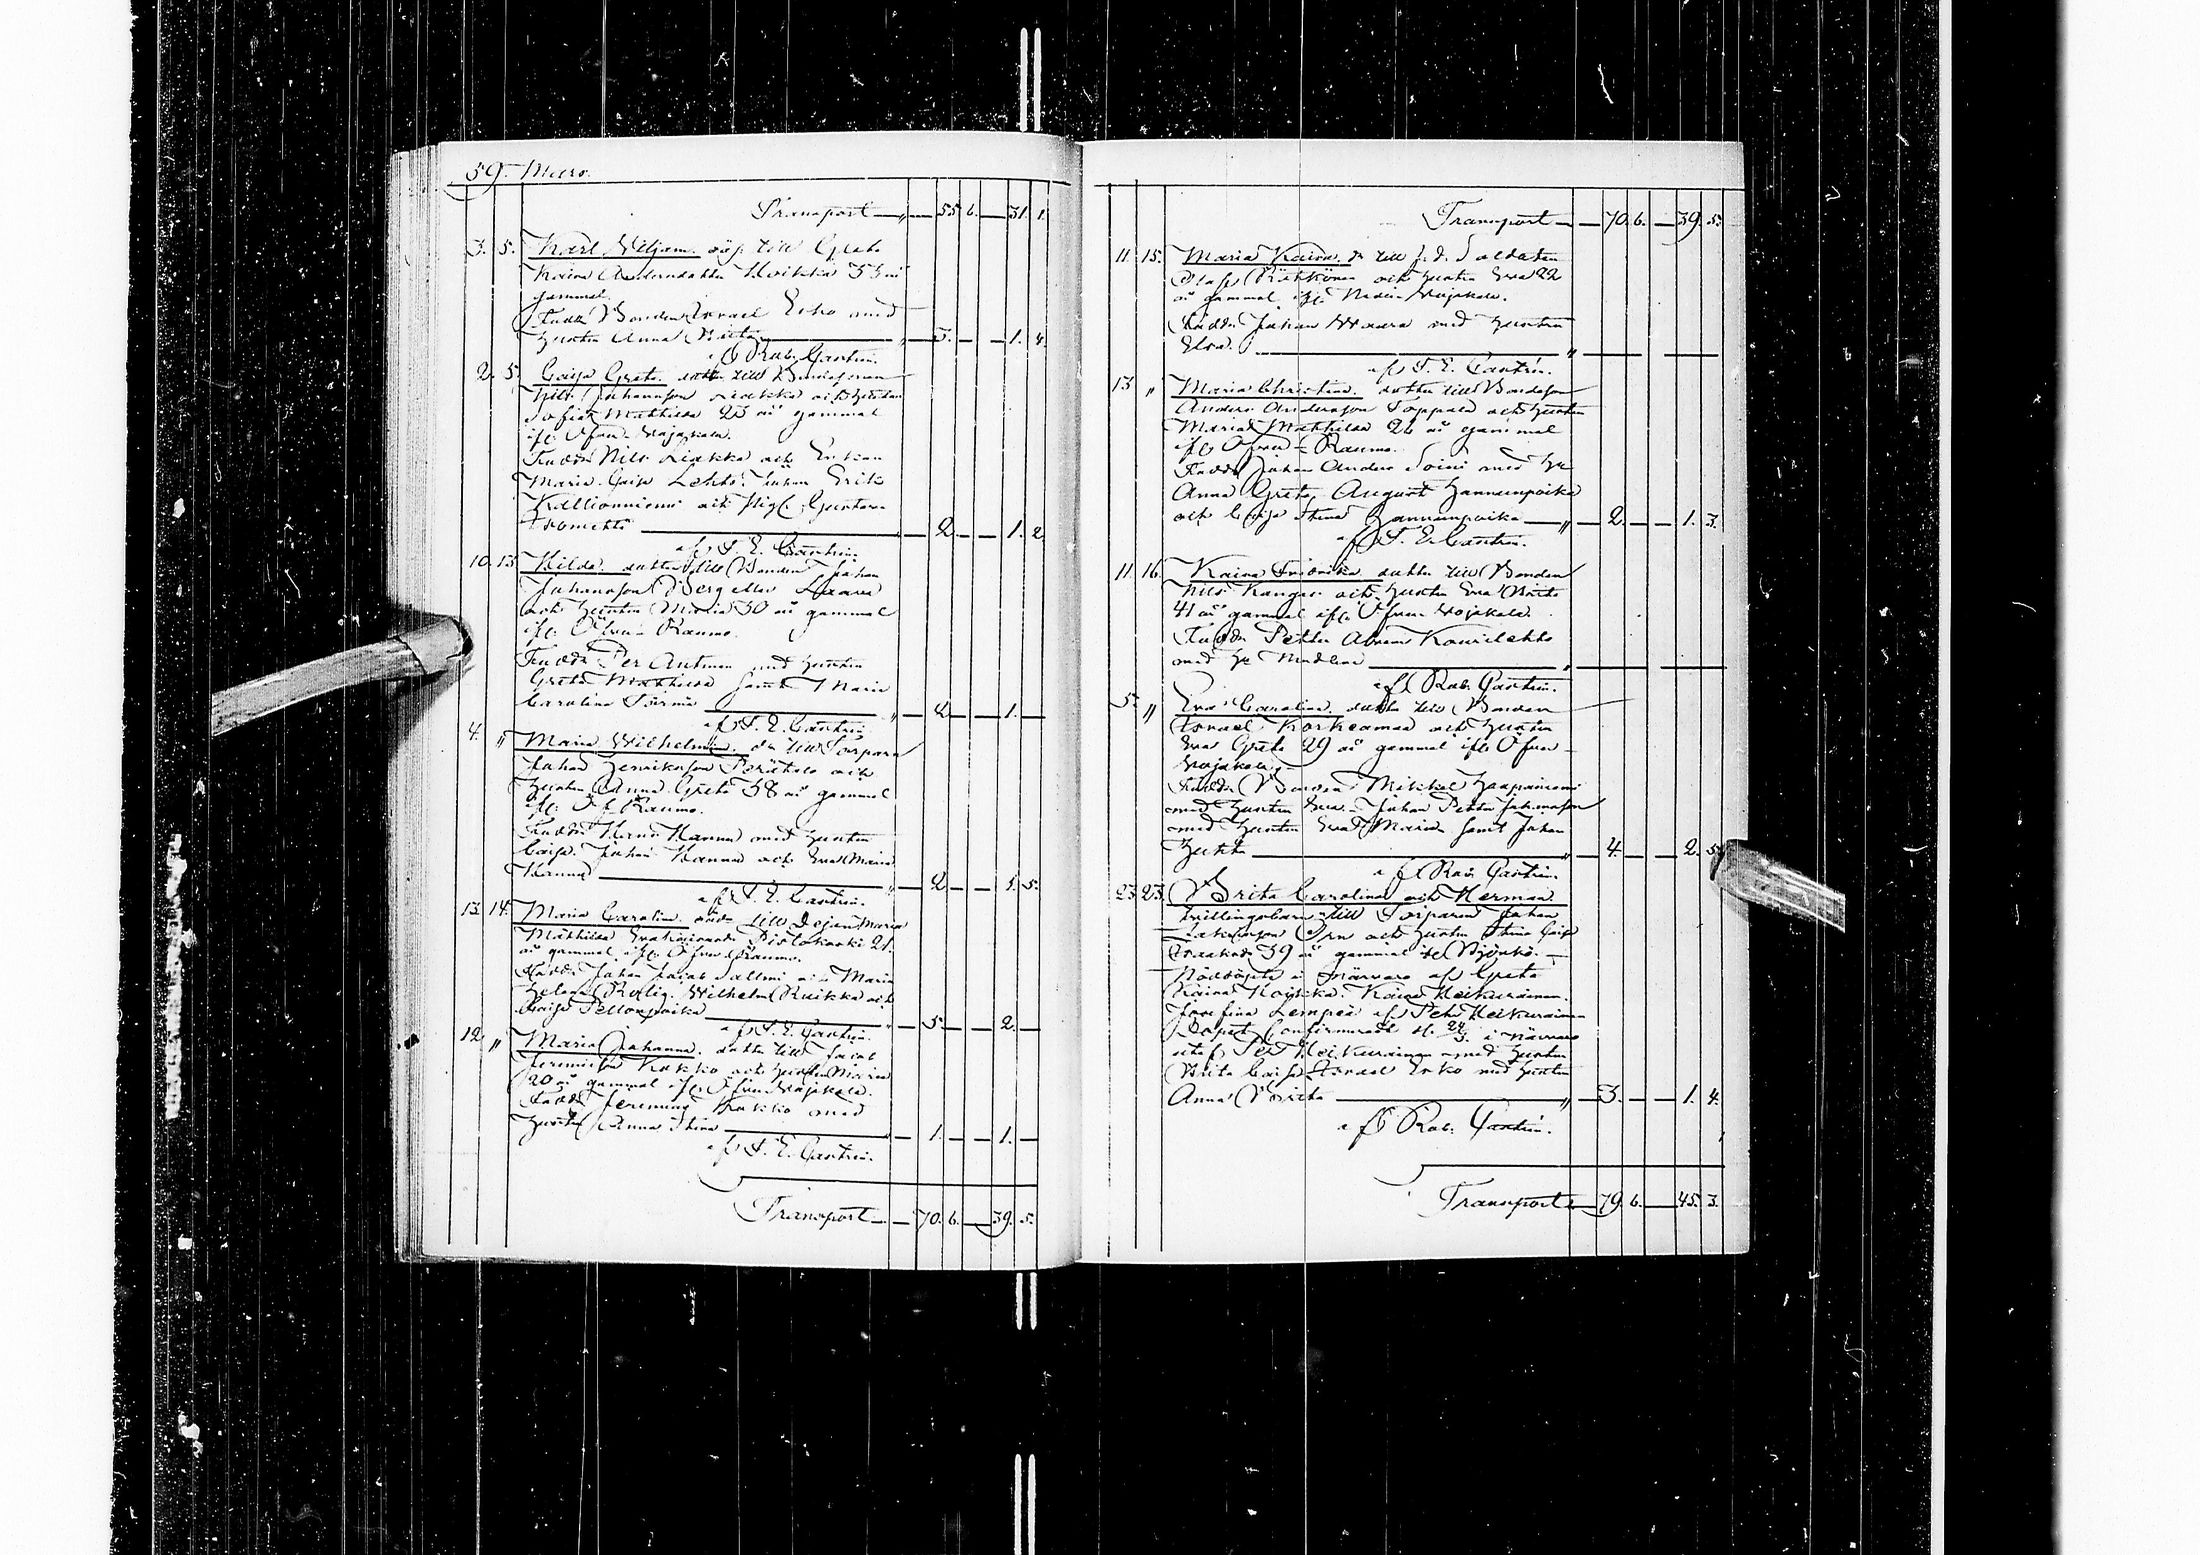 59. Mars.
Transport — „ — 55. 6. — 31. 1.
3. 5. Karl Viljam. oäg. till Greta
Kaisa Andersdotter Hoikka 33 år
gammal.
Fadd: Bonden Israel Erko med
hustru Anna Brita — „ — 3. — — 1. 4.
af Rab. Castrén.
2. 5. Caisa Greta. dotter till Bondesonen
Nils Johansson Liakka och hustru
Sofia Mathilda 23 år gammal
ifr. Öfver-Vojakala.
Fadd: Nils Liakka och Enkan
Maria Caisa Lehto. Johan Erik
Kallionniemi och Pig. Gustava
— 2. — — 1. 2.
af F. E. Castrén.
10. 13. Hilda. dotter till Bonden Johan
Johansson Berg eller Laara
och hustru Maria 30 år gammal
ifr. Öfver-Raumo.
Fadd: Per Antman med hustru
Greta Mathilda samt Maria
Carolina — „ — 2. — — 1. —
af F. E. Castrén.
4. „ Maria Wilhelmin. dr till Torparen
Johan Henriksson Perätalo och
hustru Anna Greta 38 år gammal
ifr. Öf. Raumo.
Fadd: Hans Hannu med hustru
Caisa. Johan Hannu och Eva Maria
Hannu — „ — 2. — — 1. 5.
af F. E. Castrén.
13. 14. Maria Carolin. oäd. till Dejan Maria
Mathilda 21
år gammal ifr. Öfver Raumo.
Fadd: Johan Jacob Sallmi och Maria
Helena Rolig. Wilhelm Kuikka och
Caisa Pellonpoika — „ — 5. — — 2. —
af F. E. Castrén.
12. „ Maria Johanna. dotter till Jacob
Jeremiasson Kokko och hustru Maria
20 år gammal ifr. Öfver-Vojakala.
Fadd: Jeremias Kokko med
hustru Anna Stina — „ — 1. — — 1. —
af F. E. Castrén.
Transport — — 70. 6. — 39. 5.
Transport — — 70. 6. — 39. 5.
11. 15. Maria Kaisa. dr till f. d. Soldaten
Olof Rätkönen och hustru Eva 22
år gammal ifr. Neder-Vojakala.
Fadd: Johan Waara med hustru
Elsa. — „ —
af F. E. Castrén.
13. „ Maria Christina. dotter till Bondeson
Anders Andersson Poppala och hustru
Maria Mathilda 26 år gammal
ifr. Öfver-Raumo.
Fadd: Johan Anders Soini med hu
Anna Greta, August Hannunpoika
och Caisa Stina Hannunpoika — „ — 2. — — 1. 3.
af F. E. Castrén.
11. 16. Kaisa Fredrika dotter till Bonden
Nils Kangas och hustru Eva Brita
41 år gammal ifr. Öfver Vojakala.
Fadd: Petter Abram Kourilehto
med hu Madlena — „ —
af Rab. Castrén.
5. „ Eva Carolina. dotter till Bonden
Israel Korkeamaa och hustru
Eva Greta 29 år gammal ifr. Öfver-
Vojakala.
Fadd: Bonden Mikkel Haapaniemi
med hustru Eva. Johan Petter Johansson
med hustru Eva Maria samt Johan
Hukka — „ — 4. — — 2. 5.
af Rab. Castrén.
23. 23. Brita Carolina och Herman
tvillingabarn till Torparen Johan
och hustru Stina Caisa
39 år gammal ifr Björkö. —
Nöddöpte i närvaro af Greta
Kaisa Hoikka. Kaisa Keikurainen.
Josefina Lempeä af Petr Keikurainen
Dopet Confirmeradt d. 24/3. i närvaro
utaf Per Keikurainen med hustru
Brita Caisa. Israel Erko med hustru
Anna Brita — „ — 3. — — 1. 4.
af Rab. Castrén.
Transport — — 79. 6. — 45. 3.